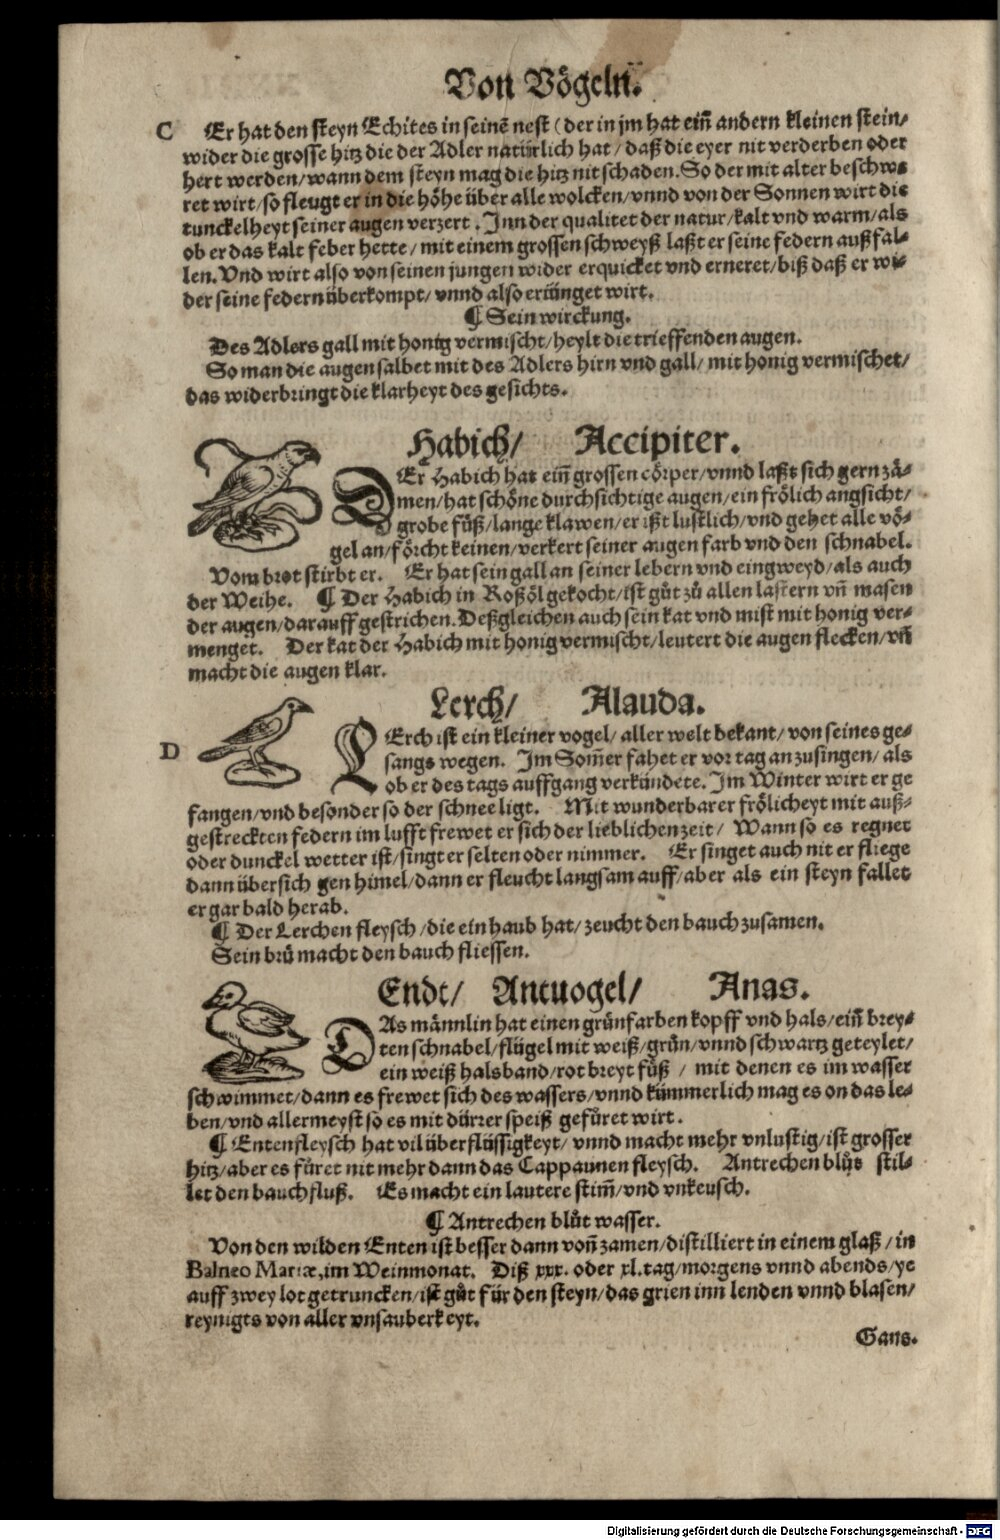 Von Vögeln.
C Er hat den steyn Echites in seinē nest (der in jm hat ein̄ andern kleinen stein/
wider die grosse hitz die der Adler natürlich hat/ daß die eyer nit verderben oder
hert werden/ wann dem steyn mag die hitz nit schaden. So der mit alter beschwe
ret wirt/ so fleugt er in die höhe über alle wolcken/ vnnd von der Sonnen wirt die
tunckelheyt seiner augen verzert. Inn der qualitet der natur/ kalt vnd warm/ als
ob er das kalt feber hette/ mit einem grossen schweyß laßt er seine federn außfal-
len. Vnd wirt also von seinen jungen wider erquicket vnd erneret/ biß daß er wi-
der seine federn überkompt/ vnnd also erjünget wirt.
¶ Sein wirckung.
Des Adlers gall mit honig vermischt/ heylt die trieffenden augen.
So man die augen salbet mit des Adlers hirn vnd gall/ mit honig vermischet/
das widerbringt die klarheyt des gesichts.
Habich/ Accipiter.
DEr Habich hat ein̄ grossen cörper/ vnnd laßt sich gern zä-
men/ hat schöne durchsichtige augen/ ein frölich angsicht/
grobe füß/ lange klawen/ er ißt lustlich/ vnd gehet alle vö-
gel an/ förcht keinen/ verkert seiner augen farb vnd den schnabel.
Vom brot stirbt er. Er hat sein gall an seiner lebern vnd eingweyd/ als auch
der Weihe. ¶ Der Habich in Roßöl gekocht/ ist gůt zů allen lastern vn̄ masen
der augen/ darauff gestrichen. Deßgleichen auch sein kat vnd mist mit honig ver-
menget. Der kat der Habich mit honig vermischt/ leutert die augen flecken/ vn̄
macht die augen klar.
Lerch/ Alauda.
D LErch ist ein kleiner vogel/ aller welt bekant/ von seines ge-
sangs wegen. Im Som̄er fahet er vor tag an zusingen/ als
ob er des tags auffgang verkündete. Im Winter wirt er ge
fangen/ vnd besonder so der schnee ligt. Mit wunderbarer frölicheyt mit auß-
gestreckten federn im lufft frewet er sich der lieblichen zeit/ Wann so es regnet
oder dunckel wetter ist/ singt er selten oder nimmer. Er singet auch nit er fliege
dann übersich gen himel/ dann er fleucht langsam auff/ aber als ein steyn fallet
er gar bald herab.
¶ Der Lerchen fleysch/ die ein haub hat/ zeucht den bauch zusamen.
Sein brü macht den bauch fliessen.
Endt/ Antuogel/ Anas.
DAs männlin hat einen grünfarben kopff vnd hals/ ein̄ brey-
ten schnabel/ flügel mit weiß/ grün/ vnnd schwartz geteylet/
ein weiß halsband/ rot breyt füß/ mit denen es im wasser
schwimmet/ dann es frewet sich des wassers/ vnnd kümmerlich mag es on das le-
ben/ vnd allermeyst so es mit dürrer speiß gefüret wirt.
¶ Entenfleysch hat vil überflüssigkeyt/ vnnd macht mehr vnlustig/ ist grosser
hitz/ aber es füret nit mehr dann das Cappaunen fleysch. Antrechen blůt stil-
let den bauchfluß. Es macht ein lautere stim̄/ vnd vnkeusch.
¶ Antrechen blůt wasser.
Von den wilden Enten ist besser dann von̄ zamen/ distilliert in einem glaß/ in
Balneo Mariæ, im Weinmonat. Diß xxx. oder xl. tag/ morgens vnnd abends/ ye
auff zwey lot getruncken/ ist gůt für den steyn/ das grien inn lenden vnnd blasen/
reynigts von aller vnsauberkeyt.
Gans.
Digitalisierung gefördert durch die Deutsche Forschungsgemeinschaft - DFG